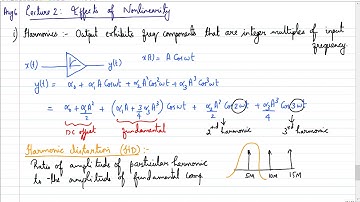 Aug 6 Lecture 2: Effects of Nonlinearity
1) Harmonics :- Output exhibits freq components that are integer multiples of input frequency
x(t) y(t) x(t) = A Cos ωt
y(t) = α₀ + α₁A Cos ωt + α₂A² Cos² ωt + α₃A³ Cos³ ωt
= α₀ + α₂A²/2 + (α₁A + 3/4 α₃A³) Cos ωt + α₂A²/2 Cos 2ωt + α₃A³/4 Cos 3ωt
DC offset fundamental 2nd harmonic 3rd harmonic
Harmonic distortion (HD) :-
Ratio of amplitude of particular harmonic
to the amplitude of fundamental comp
5M 10M 15M